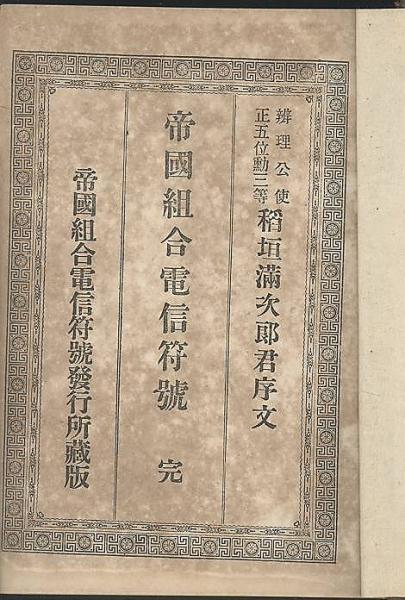 辨理公使
正五位勳三等
稻垣滿次郎君序文
帝國組合電信符號 完
帝國組合電信符號發行所藏版